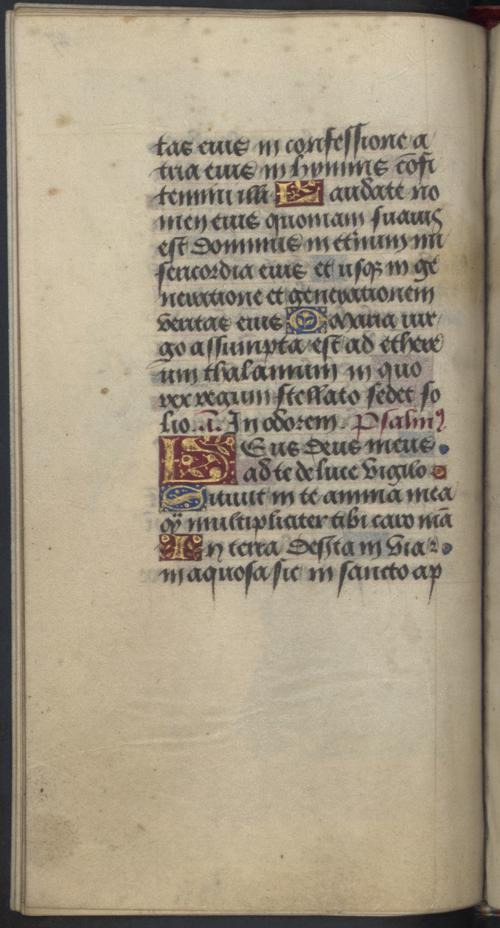 tas eius in confessione a
tria eius in hymnis cōfi
temini illi Laudate no
men eius quoniam suauis
est Dominus in etnum mi
sericordia eius et usq3 in ge
neratione et generationem
veritas eius Maria uir
go assumpta est ad ethere
um thalamum in quo
rex regum stellato sedet so
lio. a. In odorem. Psalm9
DEus Deus meus
ad te de luce vigilo
Sitiuit in te anima mea
q̄ multipliciter tibi caro mā
In terra Deserta in via
inaquosa sic in sancto ap